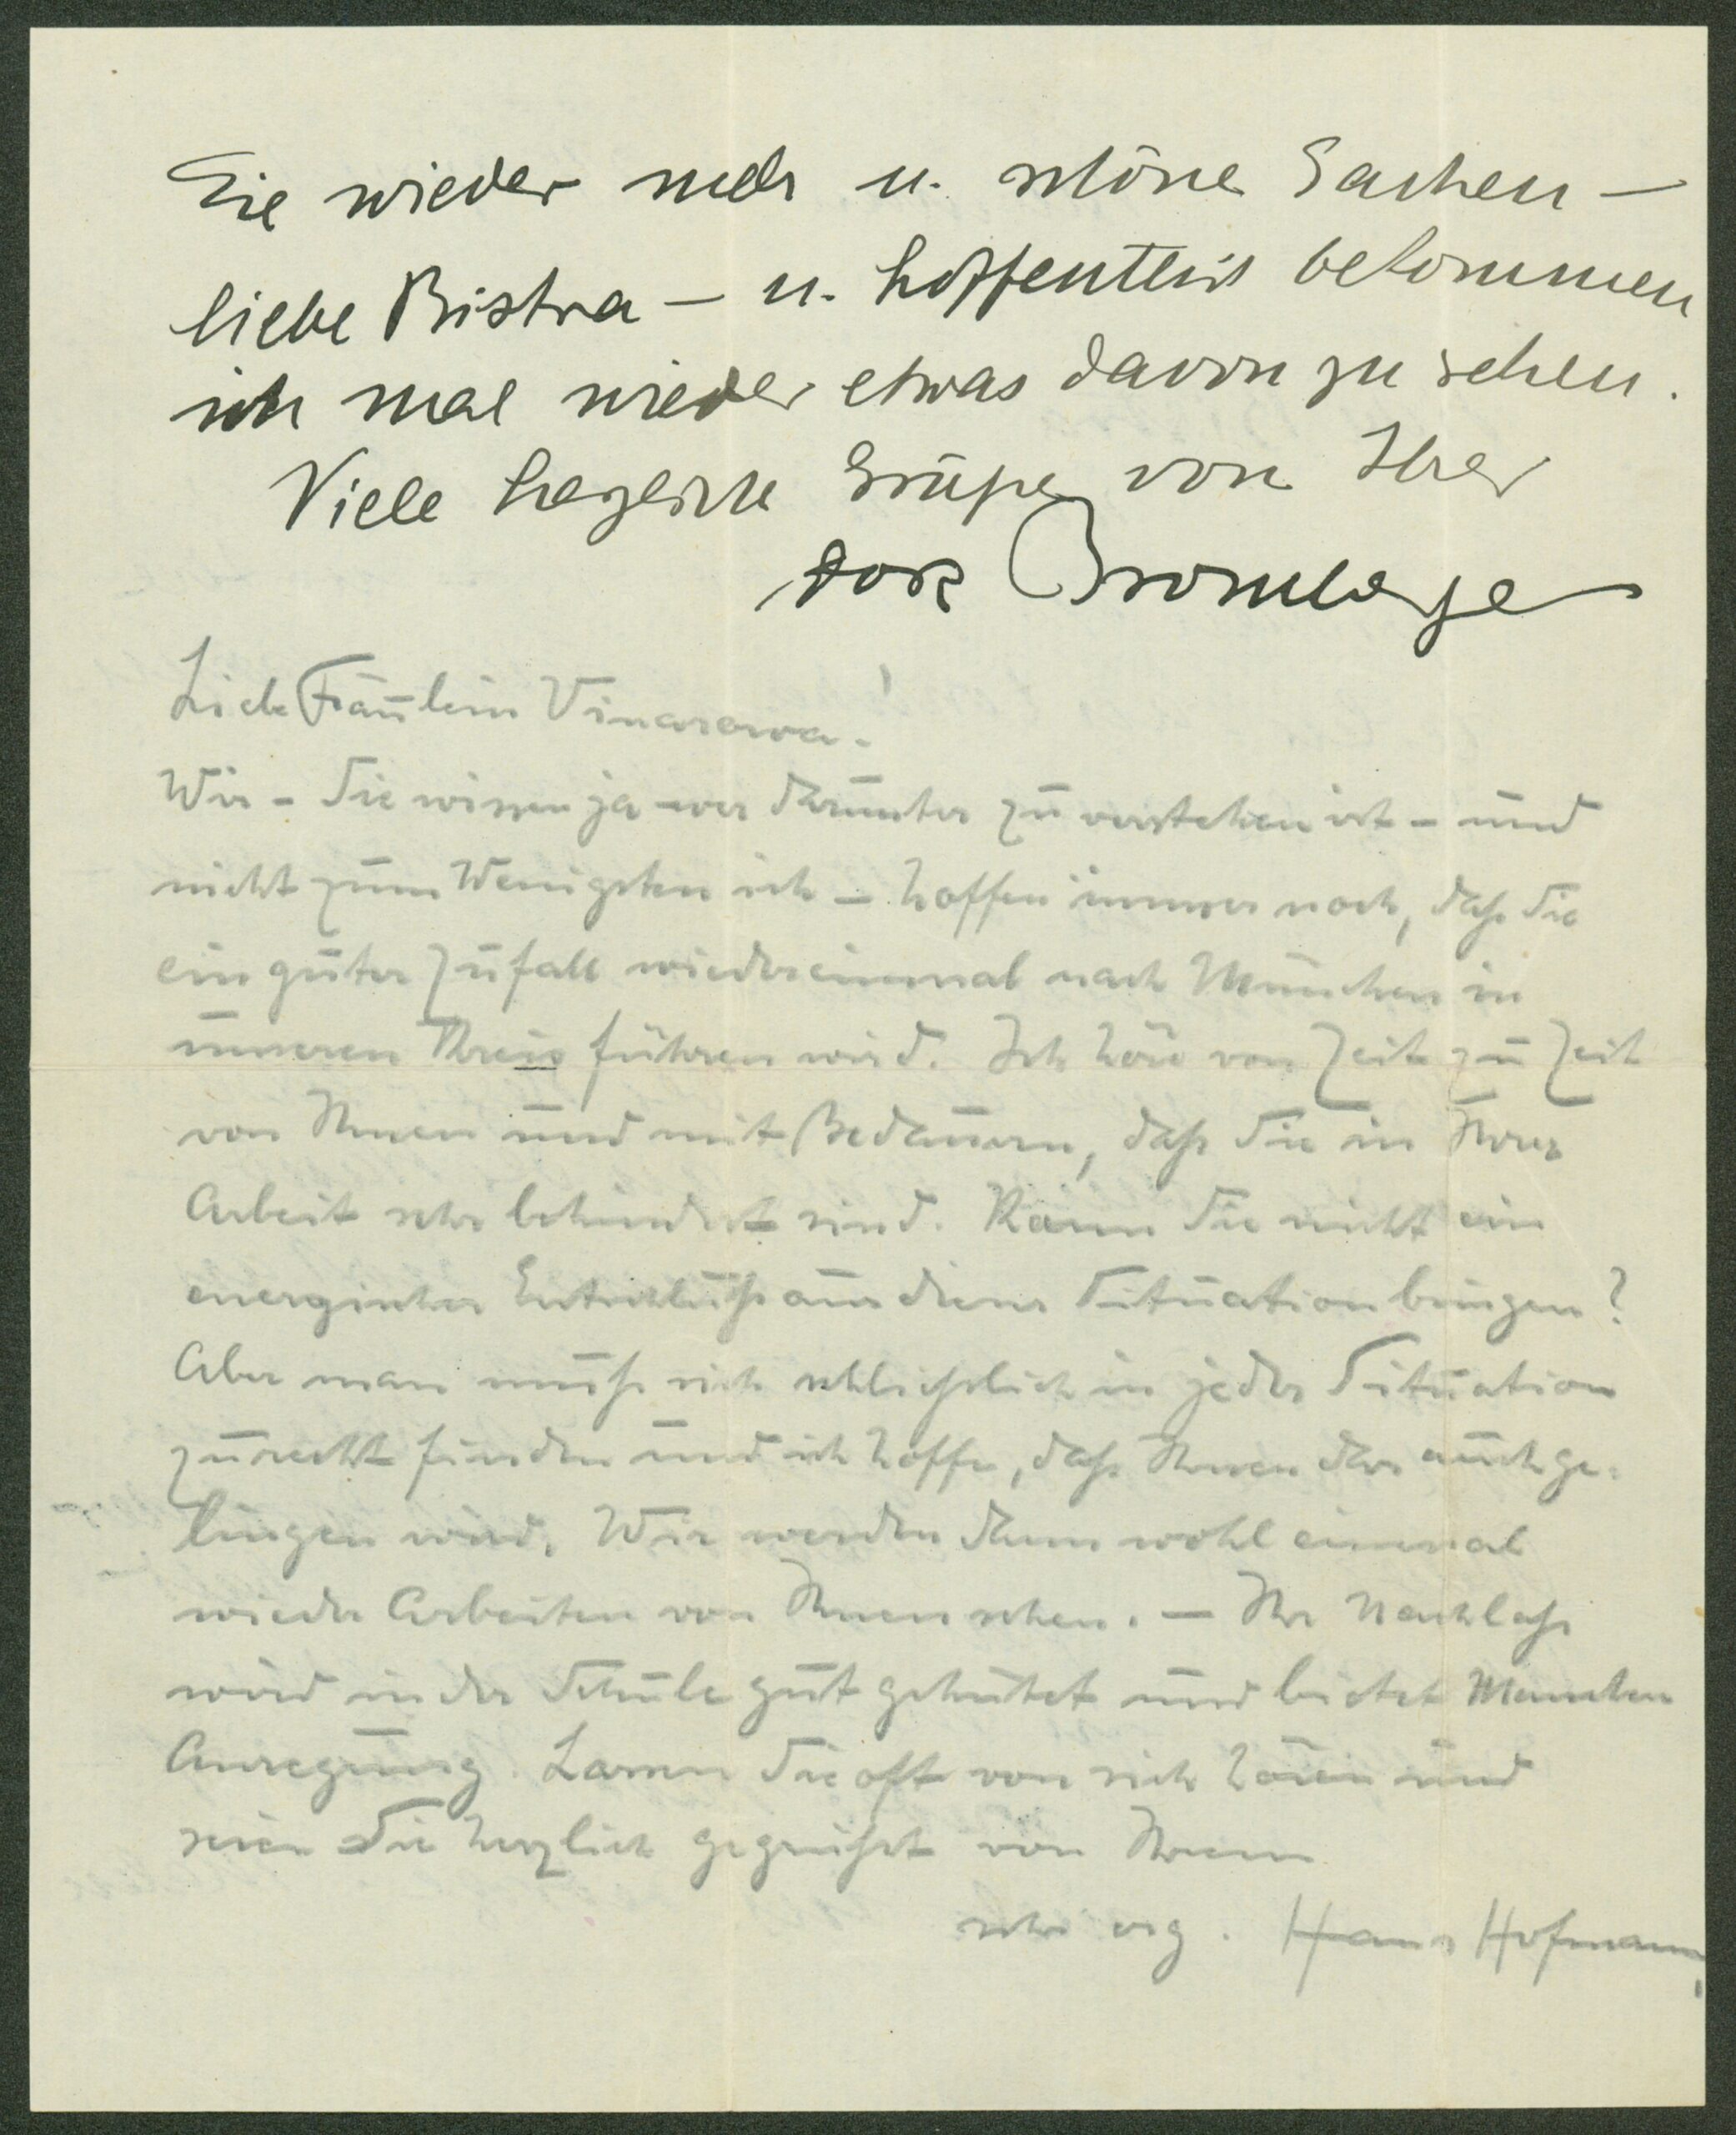 Sie wieder mehr u. schöne Sachen —
liebe Bistra — u. hoffentlich bekommen
ich mal wieder etwas davon zu sehen.
Viele herzliche Grüße von Ihrer
Liebe Fräulein Vinarowa!
Wir – Sie wissen ja wer darunter zu verstehen ist – und
nicht zum Wenigsten ich – hoffen immer noch, daß Sie
ein guter Zufall wiedereinmal nach München in
unseren Kreis führen wird. Ich höre von Zeit zu Zeit
von Ihnen und mit Bedauern, daß Sie in Ihrer
Arbeit sehr behindert sind. Kann Sie nicht ein
energischer Entschluß aus dieser Situation bringen?
Aber man muß sich schließlich in jeder Situation
zurecht finden und ich hoffe, daß Ihnen das auch ge=
lingen wird. Wir werden dann wohl einmal
wieder Arbeiten von Ihnen sehen. — Ihr Nachlaß
wird in der Schule gut gehütet und bietet Manchen
Anregung. Lassen Sie oft von sich hören und
seien Sie herzlich gegrüßt von Ihrem
sehr erg. Hans Hofmann